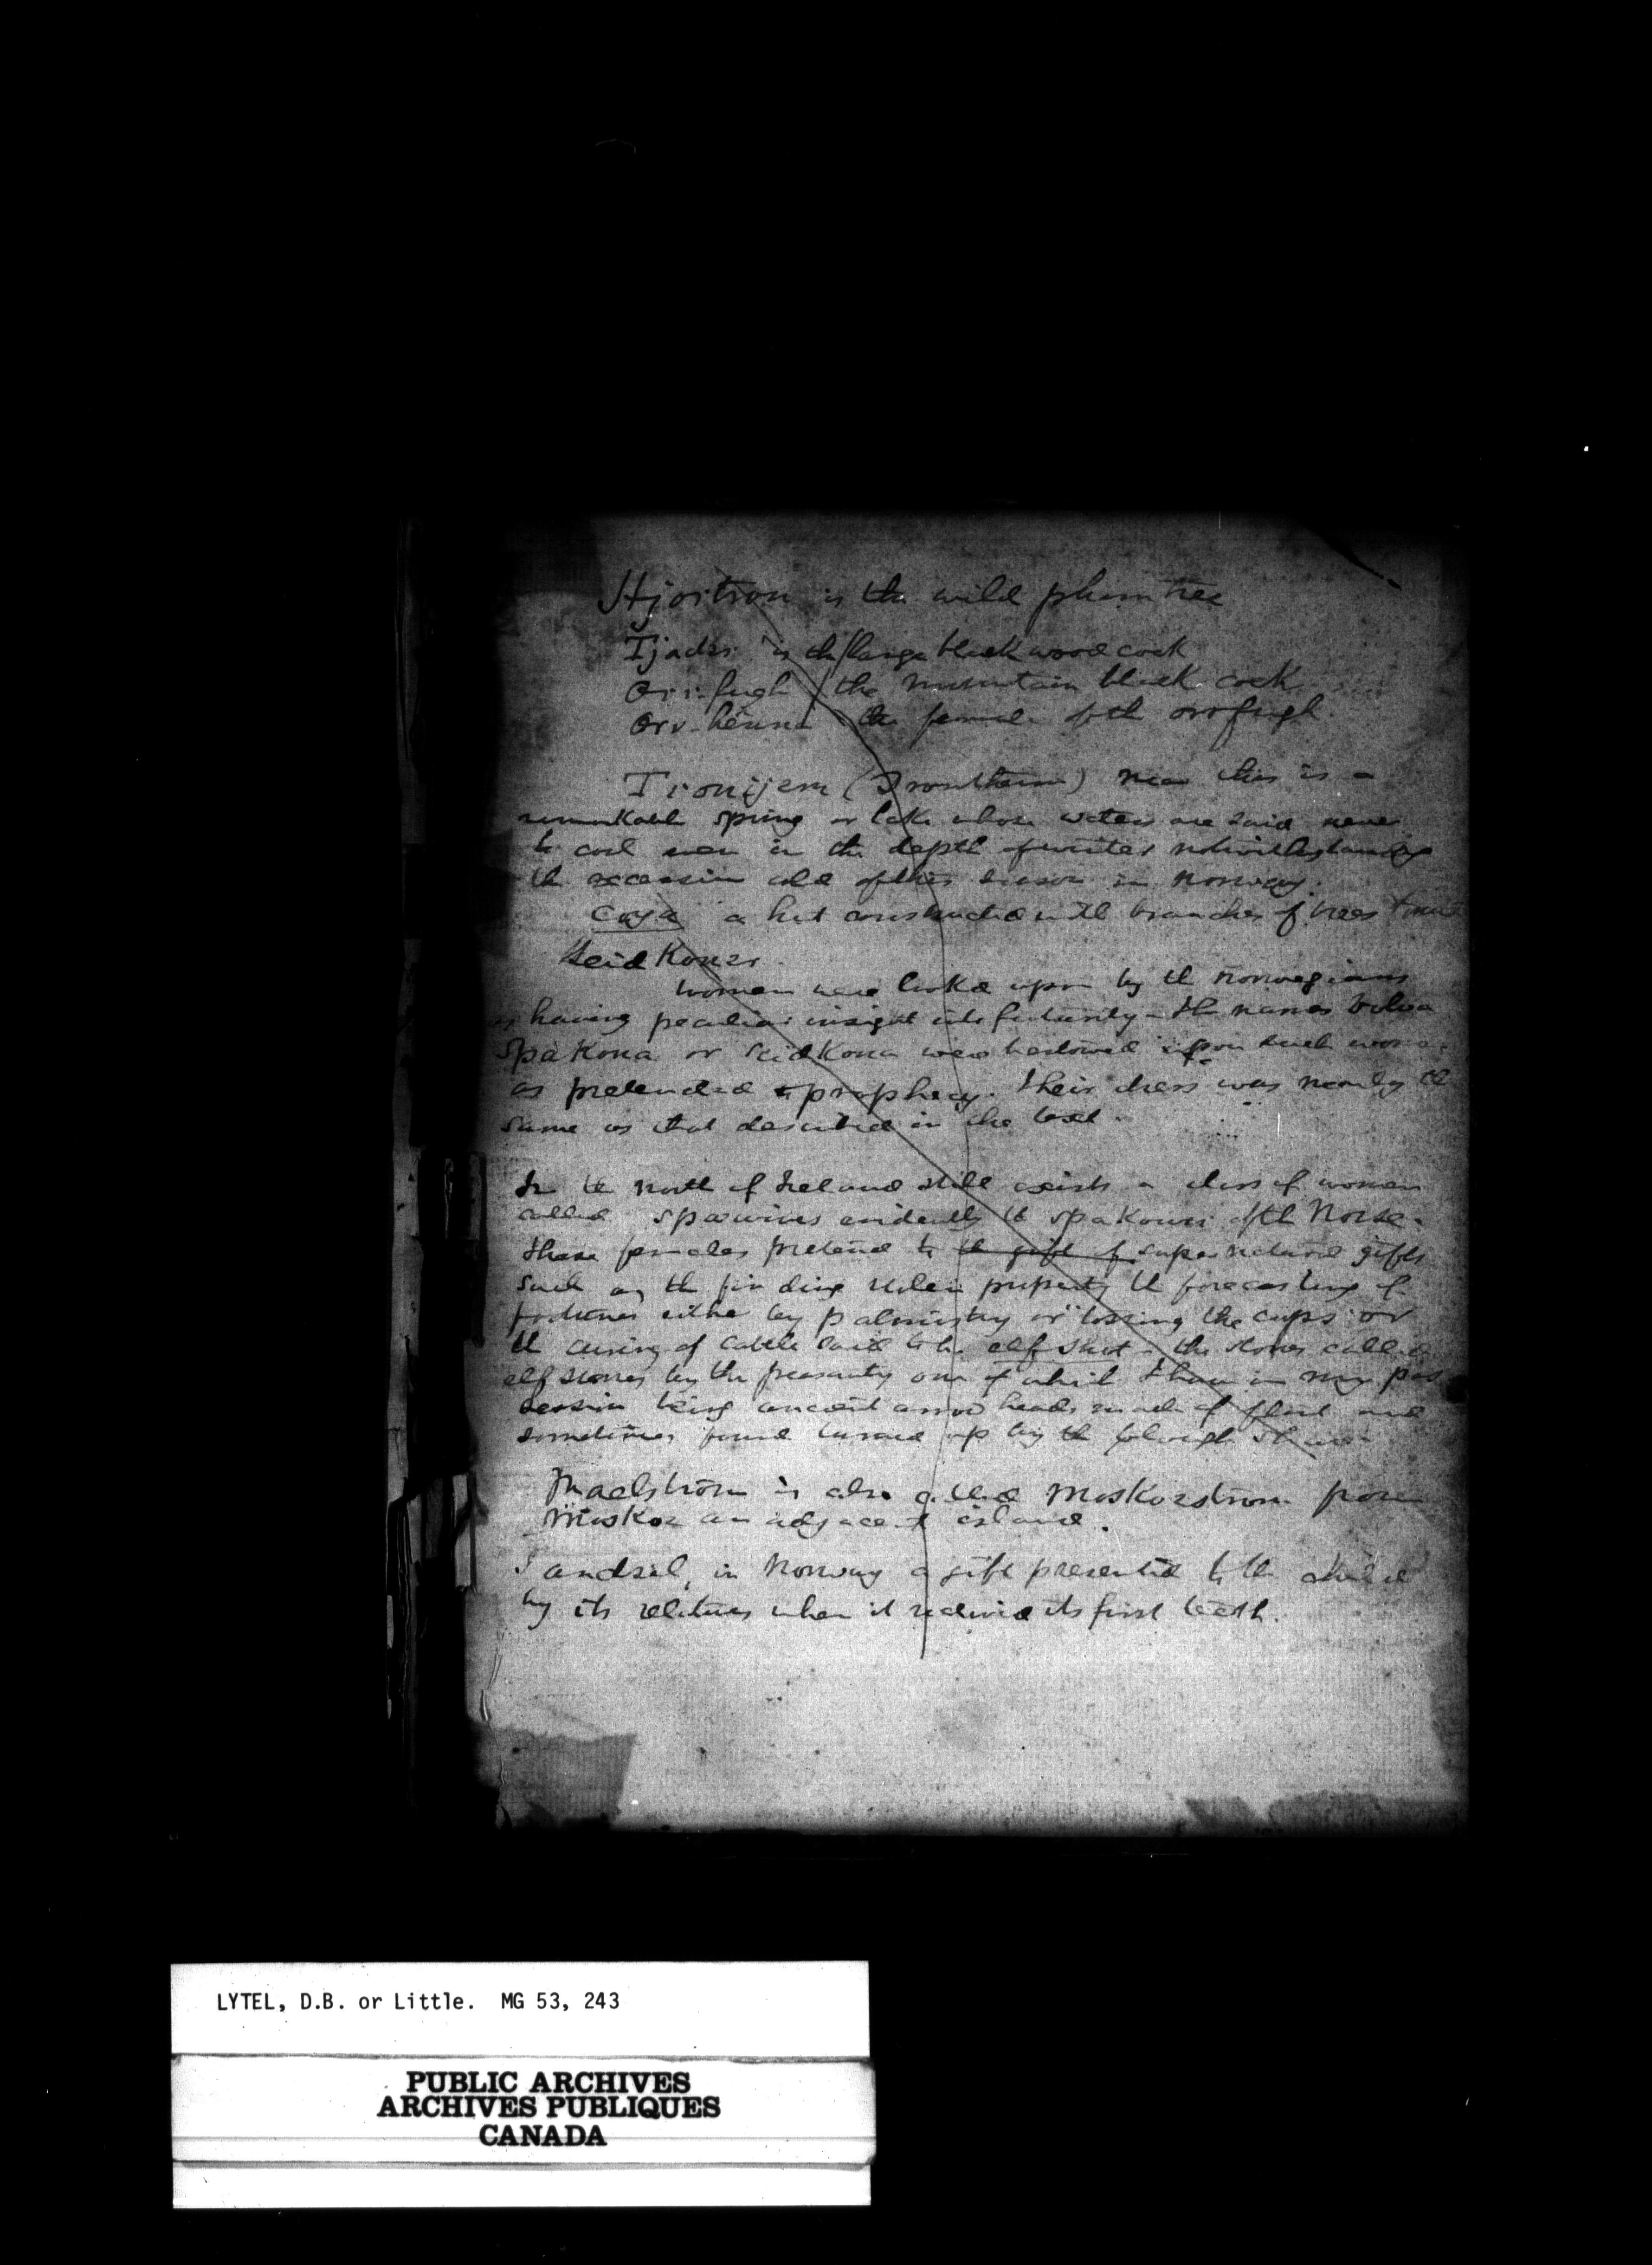 Hjortron is the wild plum tree
Tjader is the large black wood cock
Orr-fugh the mountain black cock
Orr-henne the female of th orrfugl.
Tronijem (Drontheim) near this is a
remarkable spring or lake whose waters are said never
to cool even in the depth of winter notwithstanding
th excessive cold of this season in Norway.
Coya a hut constructed with branches of trees
Seid Koner.
Women were looked upon by th Norwegians
as having peculiar insight into futurity - th names Volva
Spakona or Seidkona were bestowed upon such women
as pretended to prophecy. Their dress was nearly th
same as that described in the text.
In th north of Ireland still exists a class of women
called spaewives evidently th spakoner of th Norse.
These females pretend to th gift of supernatural gifts
such as th finding stolen property th forecasting of
fortunes either by palmistry or tossing the cups or
th curing of cattle said to be elf shot - the stones called
elf stones by the peasantry one of which I have in my pos
session being ancient arrow heads made of flint and
sometimes found turned up by th plough share
Maelström is also called Moskoestrom from
Moskoe an adjacent island.
Tandsel, in Norway a gift presented to th child
by its relatives when it received its first teeth.
LYTEL, D.B. or Little. MG 53, 243
PUBLIC ARCHIVES
ARCHIVES PUBLIQUES
CANADA